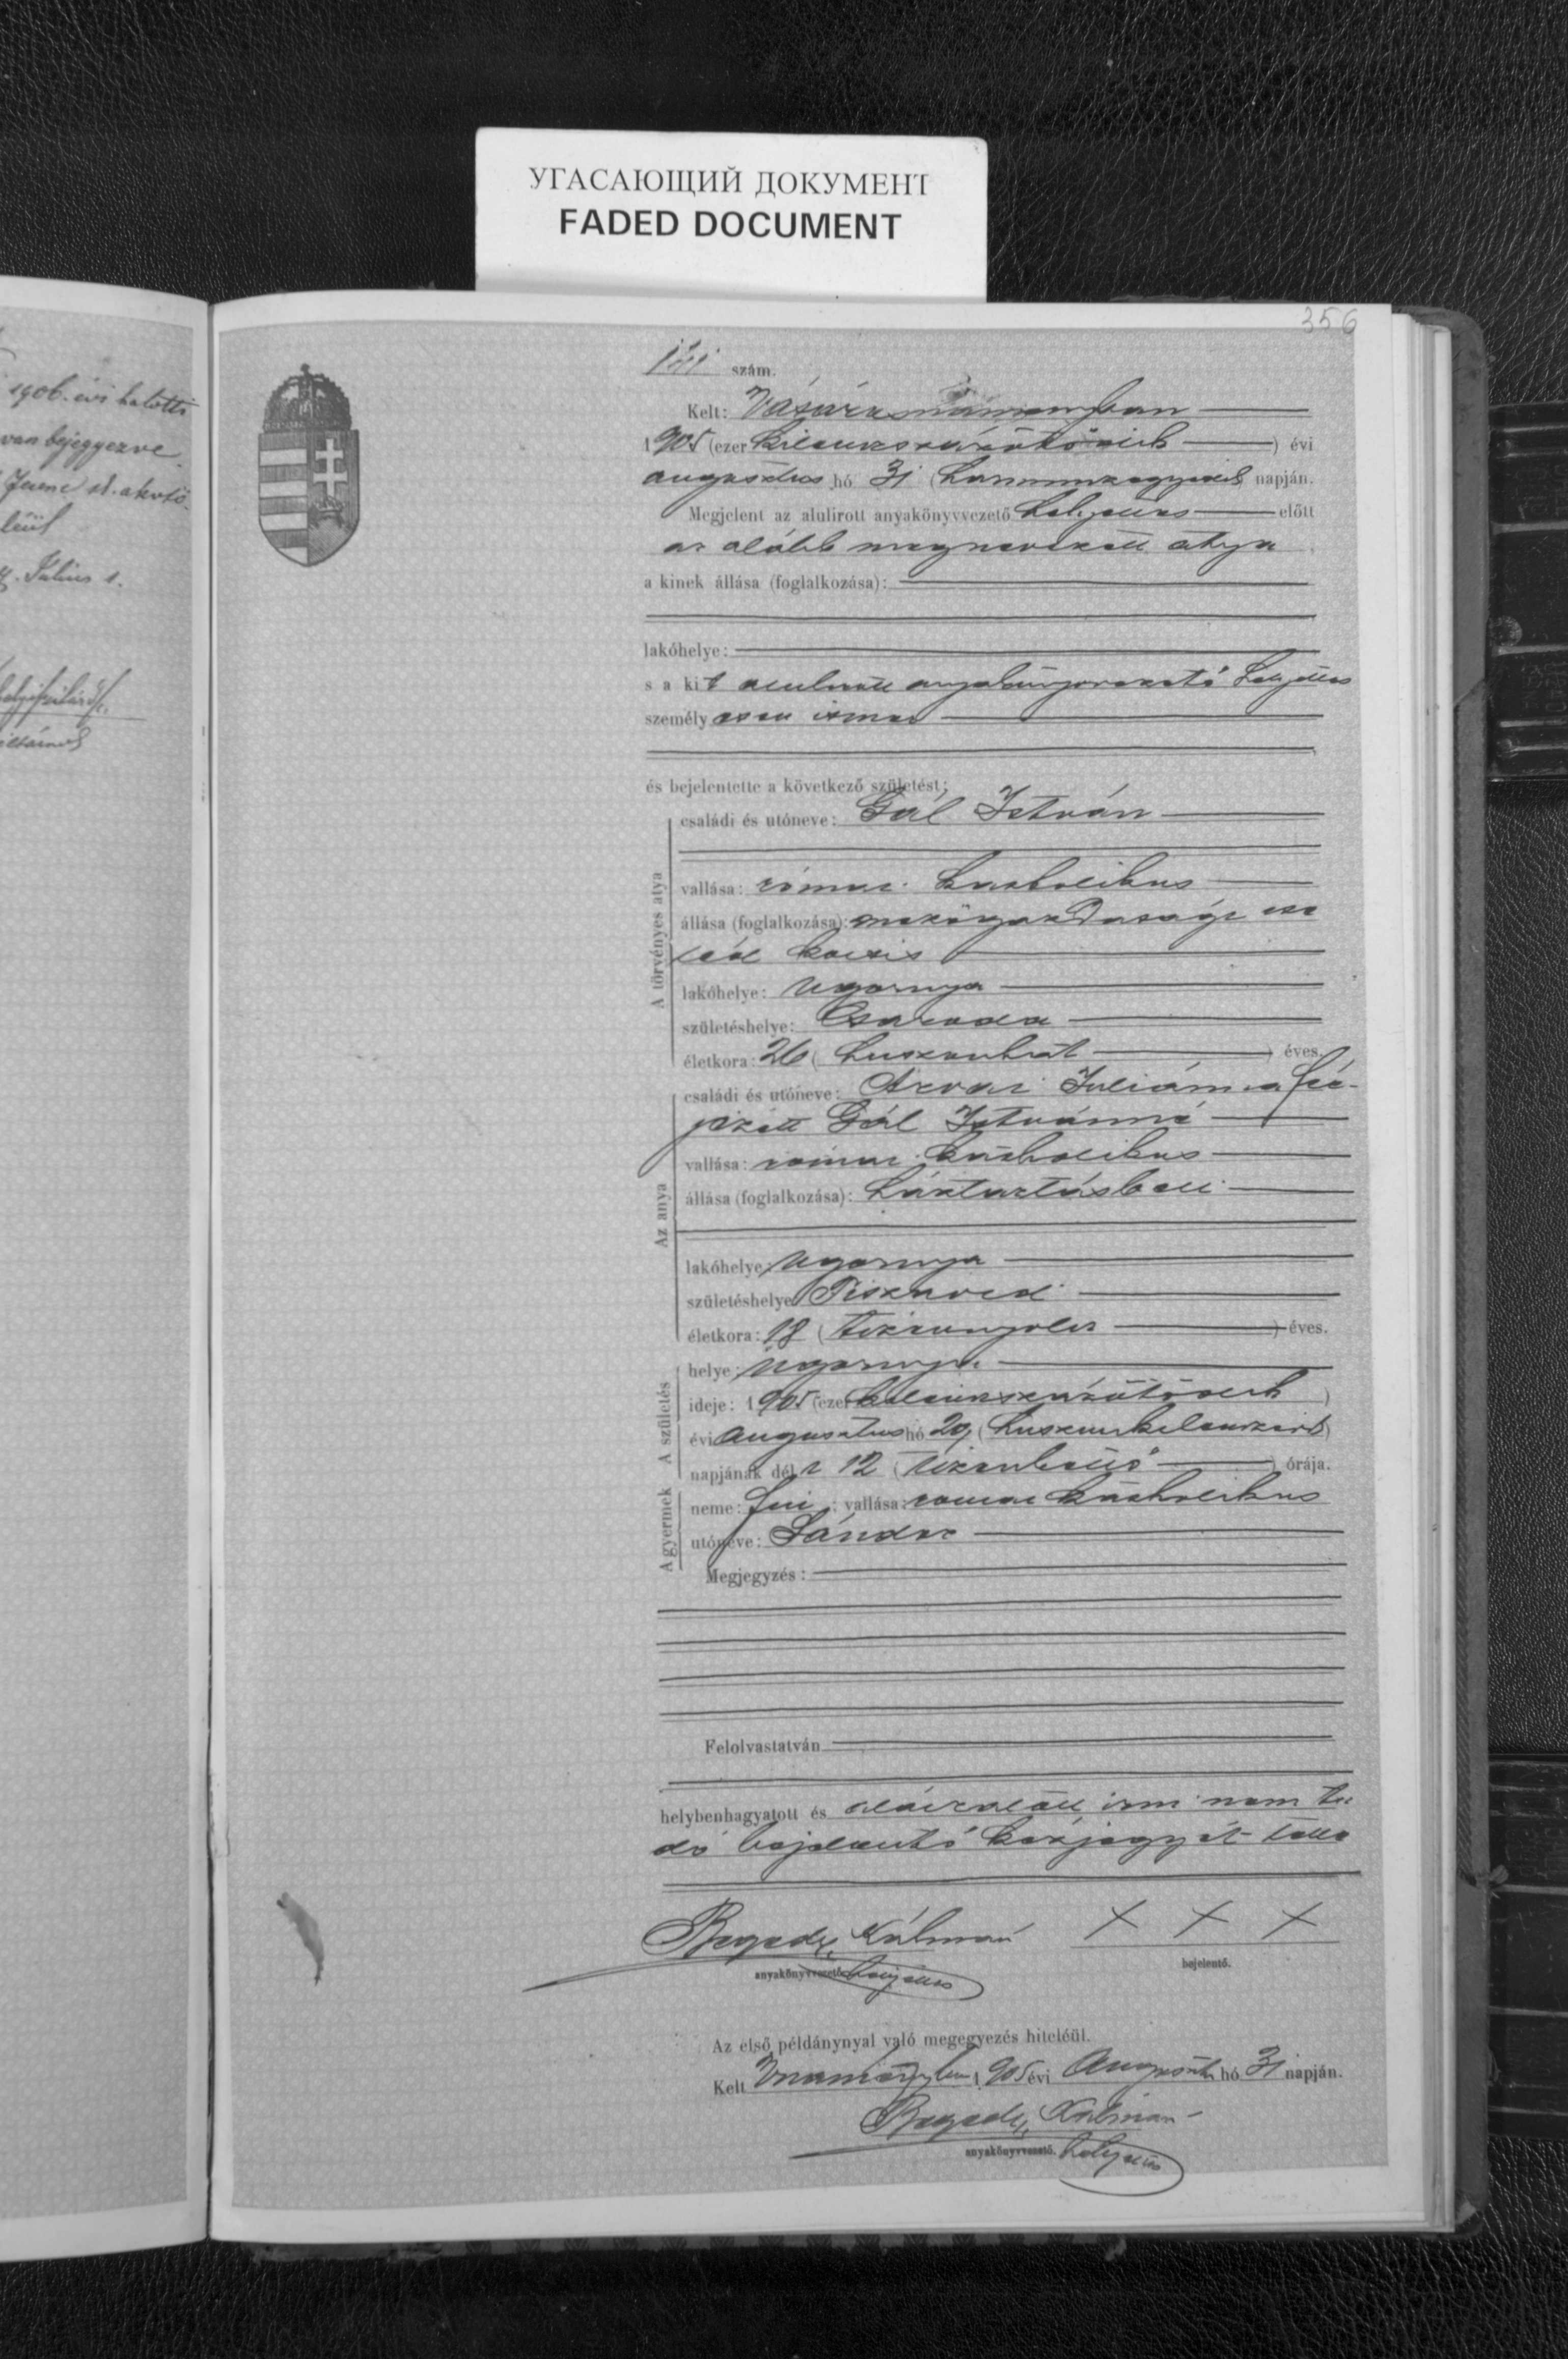 УГАСАЮЩИЙ ДОКУМЕНТ
FADED DOCUMENT
356
1906. évi halotti
van bejegyezve
Ferenc st. akvtő.
leül
Julius 1.
szám.
Kelt: Vásárosnaményban
1905 (ezer kilencszázötödik) évi
augusztus hó 31 (harminczegyedik) napján.
Megjelent az alulirott anyakönyvvezető helyettes előtt
az alább megnevezett atya
a kinek állása (foglalkozása):
lakóhelye:
s a kit alulirott anyakönyvvezető helyettes
személyesen ismer
és bejelentette a következő születést:
A törvényes atya
családi és utóneve: Gál István
vallása: római katholikus
állása (foglalkozása): mezőgazdasági cse
léd kocsis
lakóhelye: Ugornya
születéshelye: Csaroda
életkora: 26 (huszonhat) éves.
Az anya
családi és utóneve: Árvai Juliánna fér-
jezett Gál Istvánné
vallása: római katholikus
állása (foglalkozása): háztartásbeli
lakóhelye: Ugornya
születéshelye: Tiszavid
életkora: 18 (tizennyolcz) éves.
A születés
helye: Ugornya
ideje: 1905 (ezer kilencszázötödik)
évi augusztus hó 29 (huszonkilenczedik)
napjának dél 12 (tizenkettő) órája.
A gyermek
neme: fiu; vallása: római katholikus
utóneve: Sándor
Megjegyzés:
Felolvastatván
helybenhagyatott és aláiratott, irni nem tu
dó bejelentő kézjegyét tette
Kálmán
anyakönyvvezető helyettes
+ + +
bejelentő.
Az első példánynyal való megegyezés hiteléül.
Kelt Vnaményban, 1905 évi Augusztus hó 31 napján.
Kálmán
anyakönyvvezető. helyettes